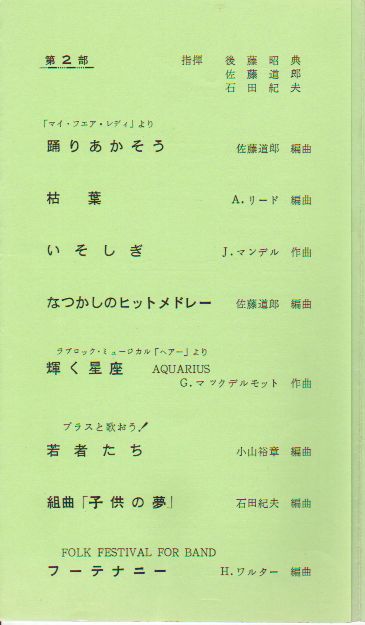 第２部　指揮　後藤昭典
佐藤道郎
石田紀夫
「マイ・フェア・レディ」より
踊りあかそう　佐藤道郎　編曲
枯葉　A.リード　編曲
いそしぎ　J.マンデル　作曲
なつかしのヒットメドレー　佐藤道郎　編曲
ラブロック・ミュージカル「ヘアー」より
輝く星座　AQUARIUS
G.マックデルモット　作曲
ブラスと歌おう！
若者たち　小山裕章　編曲
組曲「子供の夢」　石田紀夫　編曲
FOLK FESTIVAL FOR BAND
フーテナニー　H.ワルター　編曲